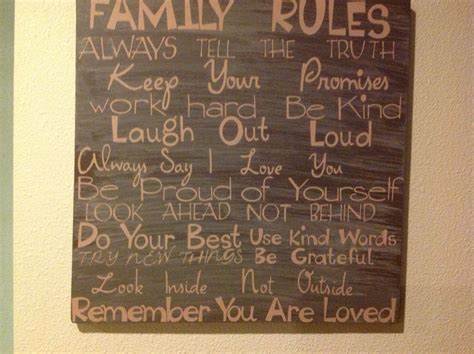 FAMILY RULES
ALWAYS TELL THE TRUTH
Keep Your Promises
work hard Be Kind
Laugh Out Loud
Always Say I Love You
Be Proud of Yourself
LOOK AHEAD NOT BEHIND
Do Your Best Use Kind Words
TRY NEW THINGS Be Grateful
Look Inside Not Outside
Remember You Are Loved